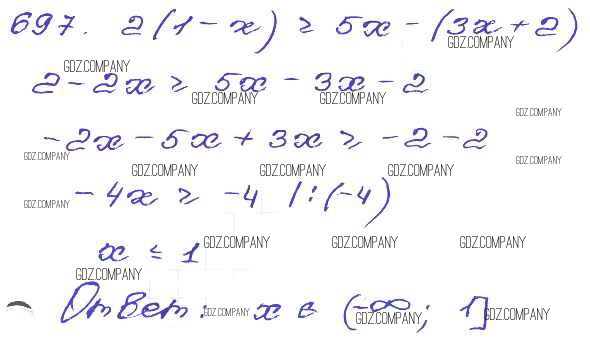 697. 2(1 - x) ≥ 5x - (3x + 2)
GDZ.COMPANY
GDZ.COMPANY
2 - 2x ≥ 5x - 3x - 2
GDZ.COMPANY GDZ.COMPANY
GDZ.COMPANY
-2x - 5x + 3x ≥ -2 - 2
GDZ.COMPANY GDZ.COMPANY
GDZ.COMPANY GDZ.COMPANY GDZ.COMPANY
-4x ≥ -4 | : (-4)
GDZ.COMPANY
x ≤ 1
GDZ.COMPANY GDZ.COMPANY GDZ.COMPANY
GDZ.COMPANY
Ответ: x ∈ (-∞; 1]
GDZ.COMPANY GDZ.COMPANY GDZ.COMPANY